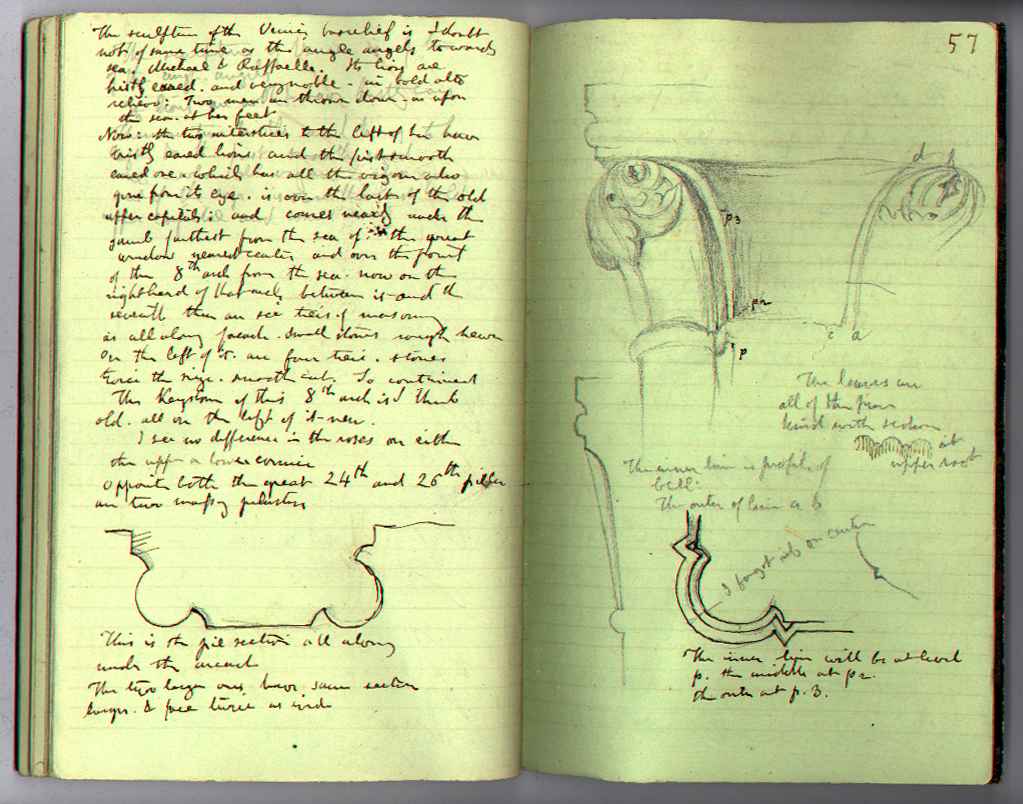 The sculpture of the Venice basrelief is I doubt
not of same time as the angle angels towards
sea, Michael & Raffaelle. Its lions are
bristly eared. and very noble - in bold alto
relievo: Two men are thrown down - as upon
the sea. at her feet
Now: the two interstices to the left of her have
bristly eared lions. and the first smooth
eared one. which has all the vigour also
gone from its eye. is over the last of the old
upper capitals: and comes nearly under the
jamb farthest from the sea of the great
window nearest center and over the front
of the 8th arch from the sea. now on the
right hand of that arch between it and the
seventh there are six tiers of masonry
as all along facade. small stones rough hewn
On the left of it. are four tiers. stones
twice the size. smooth cut. So continued
The Keystone of this 8th arch is I think
old. all on the left of it new.
I see no difference in the roses on either
the upper or lower cornice
Opposite both the great 24th and 26th pillar
are two massy pilasters
This is the pil section all along
under the arcade
The two larger ones have same section
larger. & face twice as wide
57
d b
p3
p2
p
c a
The leaves are
all of the form
kind with section
at
upper root
The inner line is profile of
bell.
The outer of line a b
I forgot rib on center
The inner line will be at level
p. the middle at p2.
the outer at p.3.